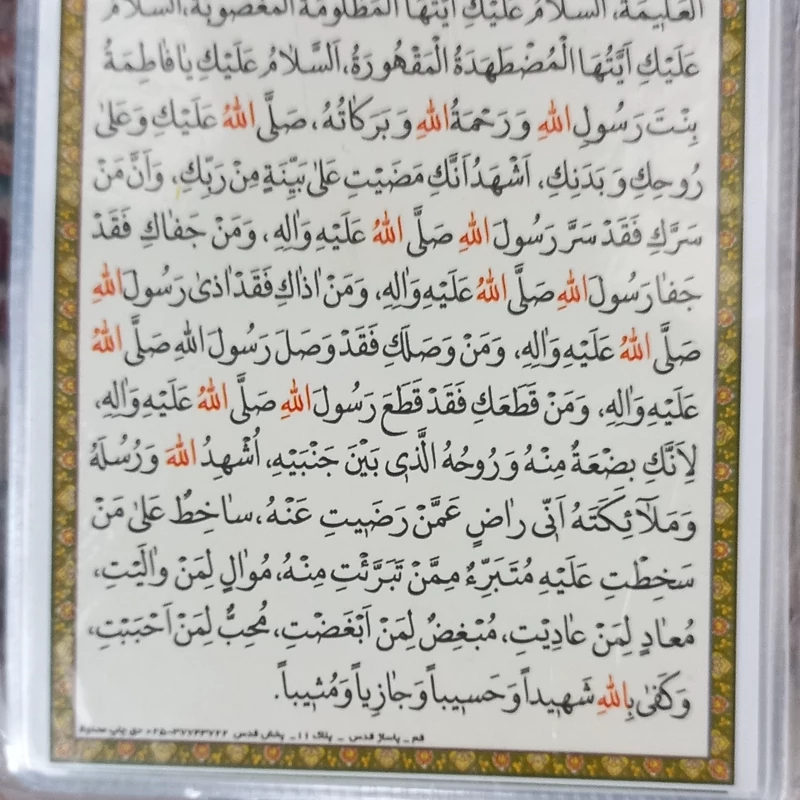 العَلیمَةُ، اَلسَّلامُ عَلَیْكِ اَیَّتُهَا الْمَظْلُومَةُ الْمَغْصُوبَةُ، اَلسَّلامُ
عَلَیْكِ اَیَّتُهَا الْمُضْطَهَدَةُ الْمَقْهُورَةُ، اَلسَّلامُ عَلَیْكِ یا فاطِمَةُ
بِنْتَ رَسُولِ اللهِ وَ رَحْمَةُ اللهِ وَ بَرَكاتُهُ، صَلَّی اللهُ عَلَیْكِ وَ عَلیٰ
رُوحِكِ وَ بَدَنِكِ، اَشْهَدُ اَنَّكِ مَضَیْتِ عَلیٰ بَیِّنَةٍ مِنْ رَبِّكِ، وَ اَنَّ مَنْ
سَرَّكِ فَقَدْ سَرَّ رَسُولَ اللهِ صَلَّی اللهُ عَلَیْهِ وَالِهِ، وَ مَنْ جَفاكِ فَقَدْ
جَفا رَسُولَ اللهِ صَلَّی اللهُ عَلَیْهِ وَالِهِ، وَ مَنْ اذاكِ فَقَدْ اذیٰ رَسُولَ اللهِ
صَلَّی اللهُ عَلَیْهِ وَالِهِ، وَ مَنْ وَصَلَكِ فَقَدْ وَصَلَ رَسُولَ اللهِ صَلَّی اللهُ
عَلَیْهِ وَالِهِ، وَ مَنْ قَطَعَكِ فَقَدْ قَطَعَ رَسُولَ اللهِ صَلَّی اللهُ عَلَیْهِ وَالِهِ،
لِاَنَّكِ بِضْعَةٌ مِنْهُ وَ رُوحُهُ الَّذی بَیْنَ جَنْبَیْهِ، اُشْهِدُ اللهَ وَ رُسُلَهُ
وَ مَلآئِكَتَهُ اَنّی راضٍ عَمَّنْ رَضَیتِ عَنْهُ، ساخِطٌ عَلیٰ مَنْ
سَخِطْتِ عَلَیْهِ مُتَبَرِّءٌ مِمَّنْ تَبَرَّئْتِ مِنْهُ، مُوالٍ لِمَنْ والَیْتِ،
مُعادٍ لِمَنْ عادَیْتِ، مُبْغِضٌ لِمَنْ اَبْغَضْتِ، مُحِبٌّ لِمَنْ اَحْبَبْتِ،
وَ كَفیٰ بِاللهِ شَهیداً وَ حَسیباً وَ جازِیاً وَ مُثیباً.
قم - پاساژ قدس - پلاک ۱۱ - پخش قدس ۳۷۷۴۳۷۴۴-۰۲۵ حق چاپ محفوظ